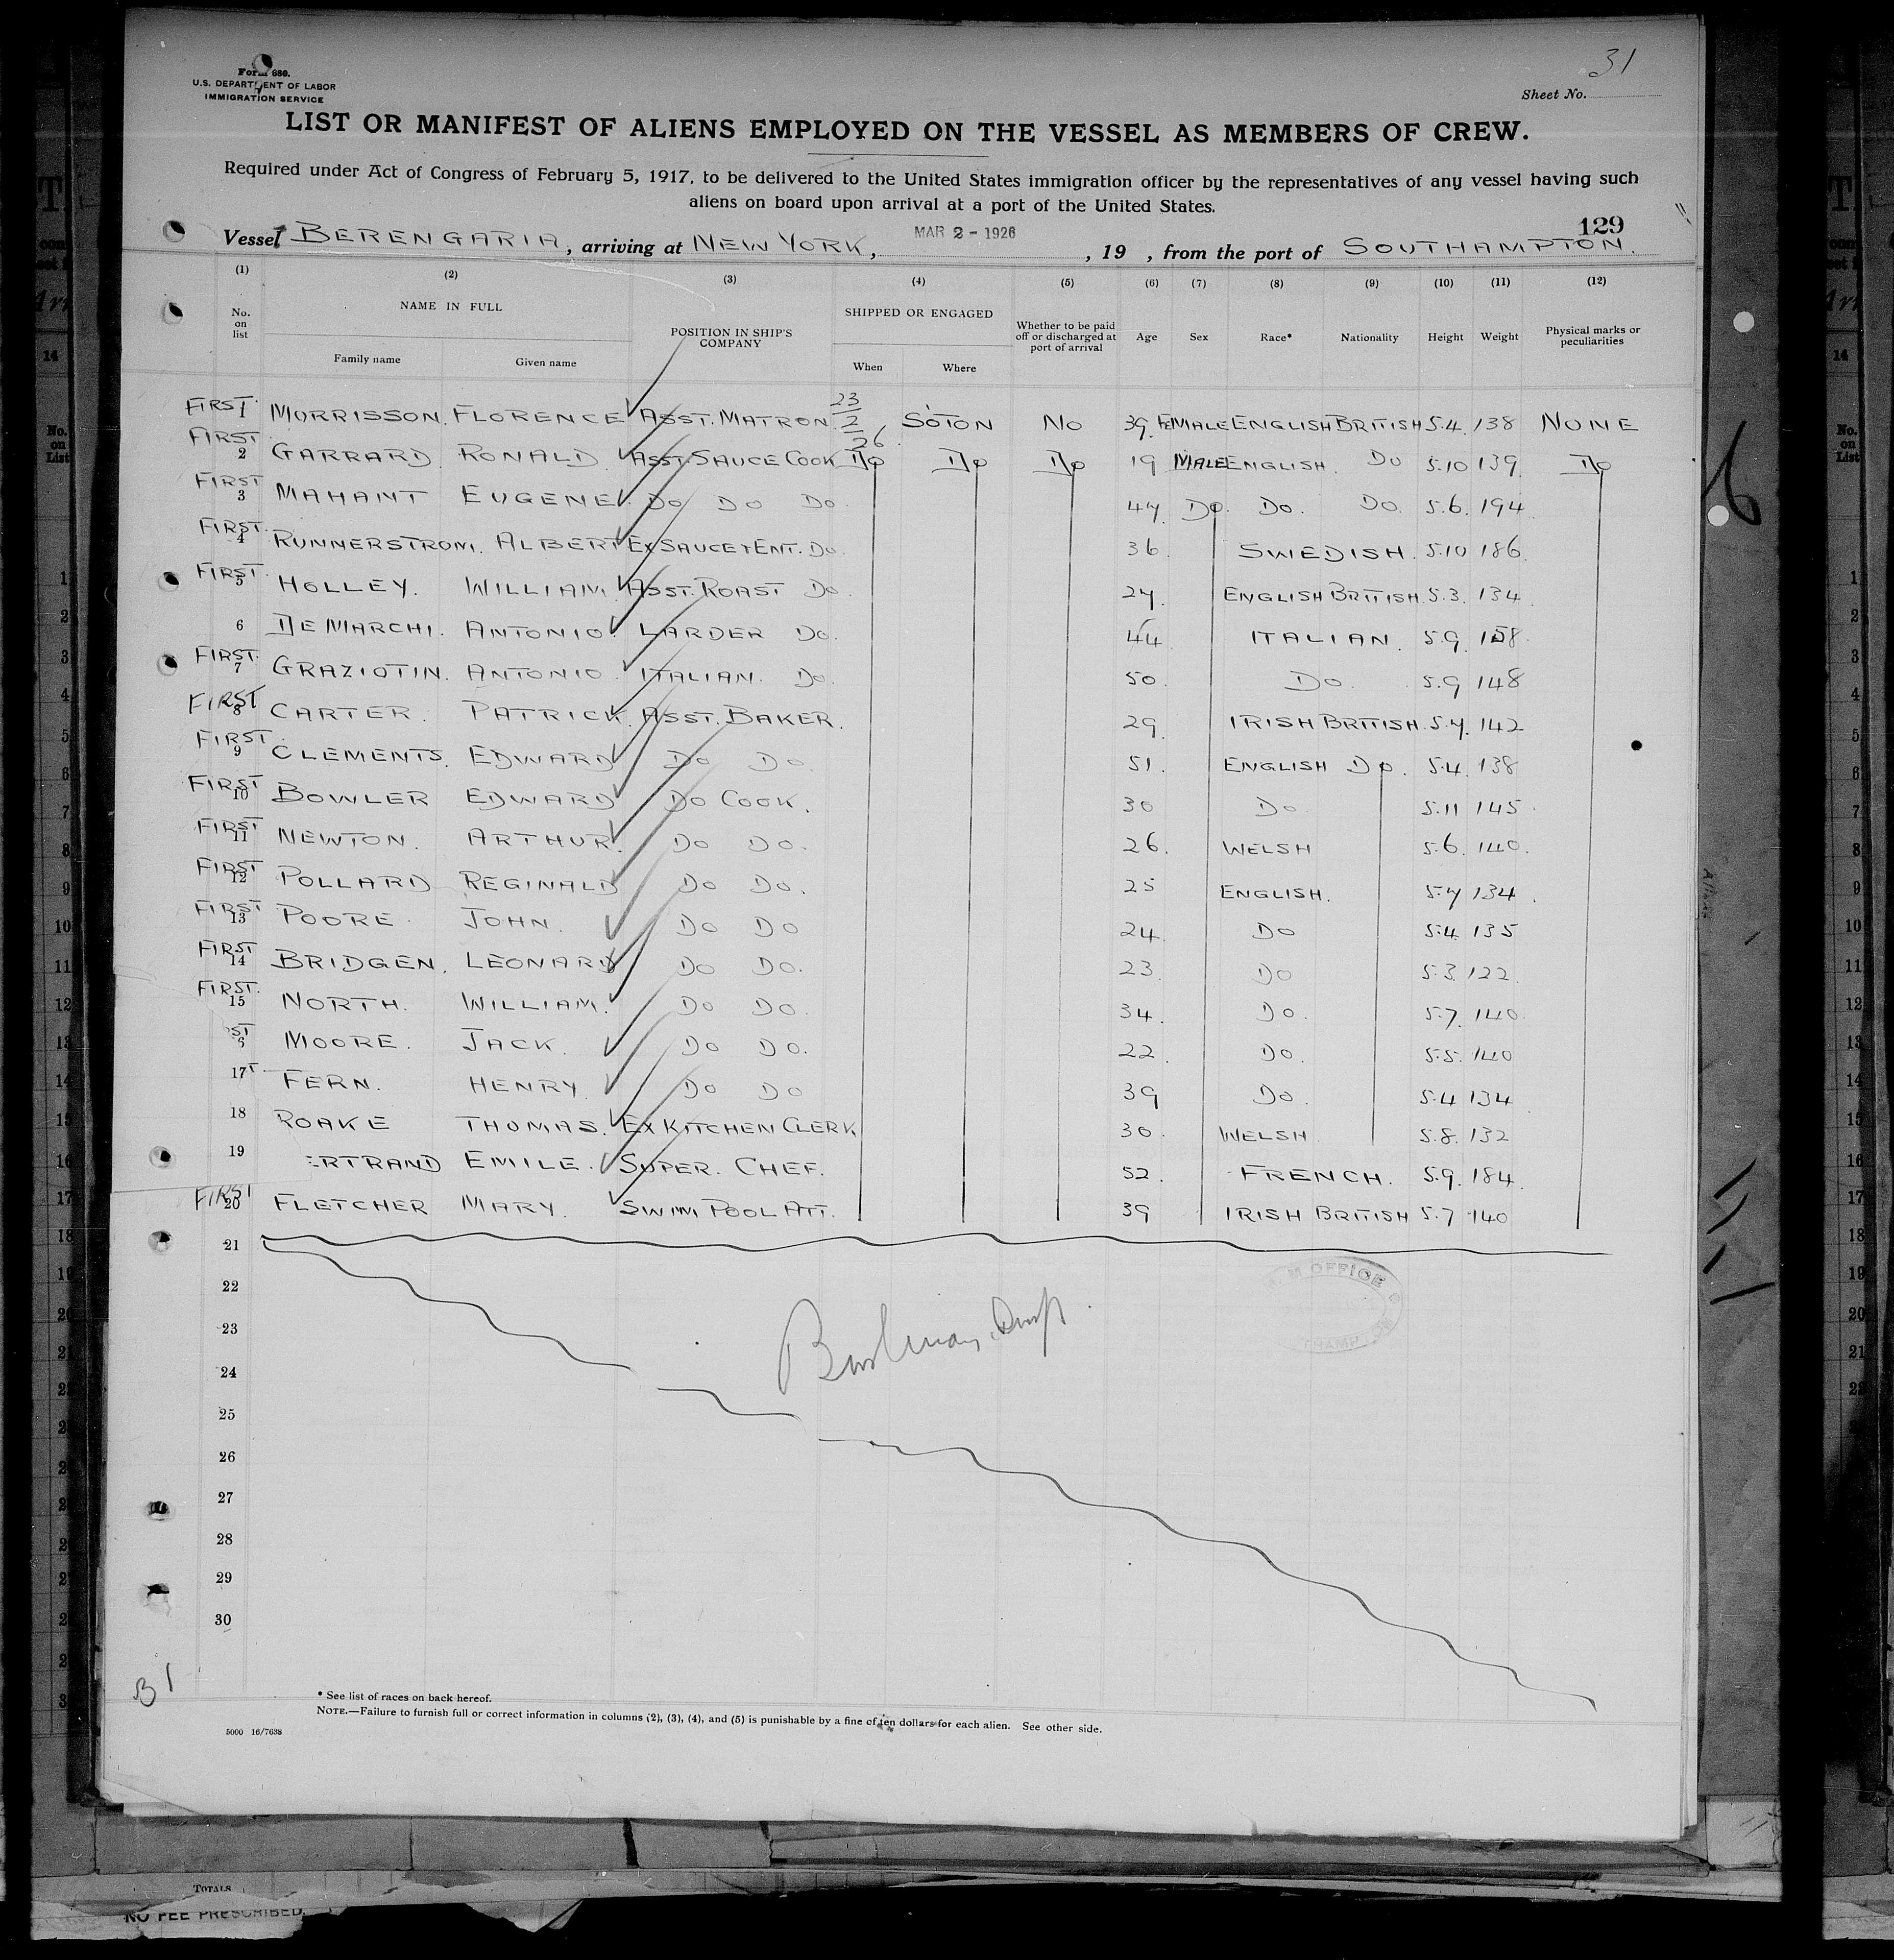 31
Form 680.
U.S. DEPARTMENT OF LABOR
IMMIGRATION SERVICE
Sheet No.
LIST OR MANIFEST OF ALIENS EMPLOYED ON THE VESSEL AS MEMBERS OF CREW.
Required under Act of Congress of February 5, 1917, to be delivered to the United States immigration officer by the representatives of any vessel having such
aliens on board upon arrival at a port of the United States.
129
Vessel BERENGARIA, arriving at NEW YORK, MAR 2 - 1926, 19 , from the port of SOUTHAMPTON.
(1) (2) (3) (4) (5) (6) (7) (8) (9) (10) (11) (12)
No. on list NAME IN FULL Family name Given name POSITION IN SHIP'S COMPANY SHIPPED OR ENGAGED When Where Whether to be paid off or discharged at port of arrival Age Sex Race* Nationality Height Weight Physical marks or peculiarities
FIRST 1 MORRISSON. FLORENCE ASST. MATRON. 23/2/26 SOTON NO 39 FEMALE ENGLISH BRITISH 5.4. 138 NONE
FIRST 2 GARRARD. RONALD. ASST. SAUCE COOK Do Do Do 19 MALE ENGLISH. Do 5.10 139. Do
FIRST 3 MAHANT EUGENE. Do Do Do. 47. Do. Do. Do. 5.6. 194.
FIRST. 4 RUNNERSTROM. ALBERT EX SAUCE & ENT. Do. 36. SWEDISH. 5.10 186.
FIRST 5 HOLLEY. WILLIAM. ASST. ROAST Do. 27. ENGLISH BRITISH. 5.3. 134.
6 DE MARCHI. ANTONIO. LARDER Do. 44. ITALIAN. 5.9. 158.
FIRST. 7 GRAZIOTIN. ANTONIO. ITALIAN. Do. 50. Do. 5.9 148
FIRST 8 CARTER. PATRICK. ASST. BAKER. 29. IRISH BRITISH. 5.7. 142
FIRST. 9 CLEMENTS. EDWARD Do Do. 51. ENGLISH Do. 5.4. 138
FIRST 10 BOWLER EDWARD Do COOK. 30 Do 5.11 145
FIRST 11 NEWTON. ARTHUR. Do Do. 26. WELSH 5.6. 140.
FIRST 12 POLLARD REGINALD Do Do. 25 ENGLISH. 5.7 134.
FIRST 13 POORE JOHN. Do Do 24. Do 5.4. 135
FIRST 14 BRIDGEN. LEONARD Do Do. 23. Do 5.3. 122.
FIRST. 15 NORTH. WILLIAM. Do Do. 34. Do. 5.7. 140.
ST 6 MOORE. JACK. Do Do. 22. Do. 5.5. 140
17 T FERN. HENRY. Do Do 39 Do. 5.4 134
18 ROAKE THOMAS. EX KITCHEN CLERK 30. WELSH. 5.8. 132
19 ERTRAND EMILE. SUPER. CHEF. 52. FRENCH. 5.9. 184.
FIRST 20 FLETCHER MARY. SWIM POOL ATT. 39 IRISH BRITISH 5.7 140
21
22
23
24
25
26
27
28
29
30
OFFICE
THAMP
31
* See list of races on back hereof.
NOTE.—Failure to furnish full or correct information in columns (2), (3), (4), and (5) is punishable by a fine of ten dollars for each alien. See other side.
5000 16/7638
TOTALS
NO FEE PRESCRIBED.